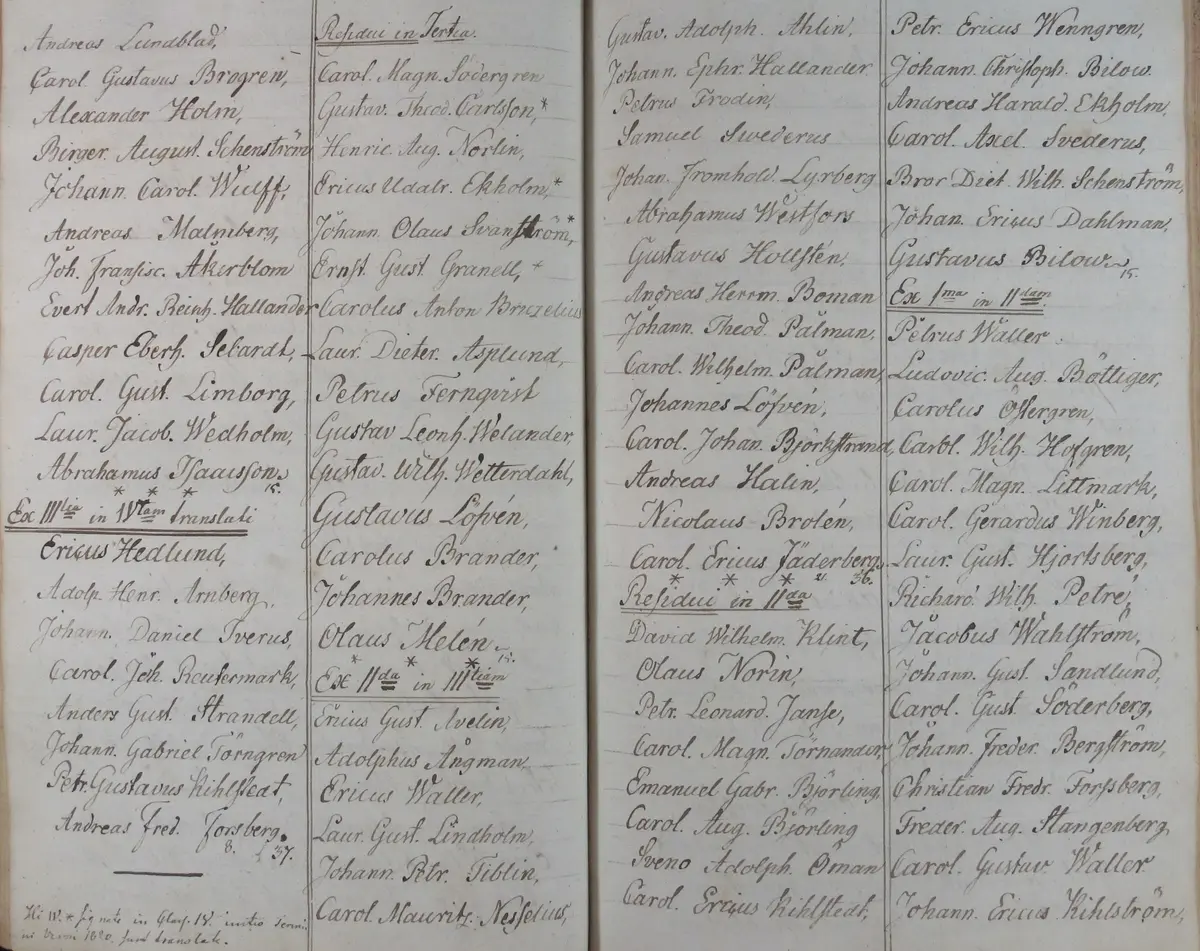 Andreas Lundblad,
Carol Gustavus Brogren,
Alexander Holm,
Birger. August. Schenström
Johann. Carol. Wulff,
Andreas Malmberg,
Joh. Fransisc. Åkerblom
Evert Andr. Reinh. Hallander
Casper Eberh. Sebardt,
Carol. Gust. Limborg,
Laur. Jacob. Wedholm,
Abrahamus Isaacsson,
15.
* * *
Ex III tia in IV tam translati
Ericus Hedlund,
Adolp. Henr. Arnberg,
Johann. Daniel Iverus,
Carol. Joh. Reutermark,
Anders Gust. Strandell,
Johann. Gabriel Törngren
Petr. Gustavus Kihlstedt,
Andreas Fred. Forsberg.
8. 37.
Hi W. * signate in Class. IV. initio
1820. sunt translate.
Residui in Tertia.
Carol. Magn. Södergren
Gustav. Theod. Carlsson, *
Henric. Aug. Norlin,
Ericus Udalr. Ekholm, *
Johann. Olaus Svanström, *
Ernst Gust. Granell, +
Carolus Anton Bruzelius
Laur. Dieter. Asplund,
Petrus Fernqvist
Gustav Leonh. Welander,
Gustav. Wilh. Wetterdahl,
Gustavus Löfvén,
Carolus Brander,
Johannes Brander,
Olaus Melén
15.
* * *
Ex II da in III tiam
Ericus Gust. Avelin,
Adolphus Ångman
Ericus Waller,
Laur. Gust. Lindholm,
Johann. Petr. Tiblin,
Carol. Mauritz. Nesselius,
Gustav. Adolph. Ahlin,
Johann. Ephr. Hallander
Petrus Frodin,
Samuel Swederus
Johan. Fromhold Lyrberg
Abrahamus Westfors
Gustavus Hollstén.
Andreas Herrm. Boman
Johann. Theod. Pålman,
Carol. Wilhelm. Pålman,
Johannes Löfvén,
Carol. Johan. Björkstrand,
Andreas Halin,
Nicolaus Brolén,
Carol. Ericus Jäderberg,
* * * 21. 36.
Residui in II da
David Wilhelm. Klint,
Olaus Norin,
Petr. Leonard. Janse,
Carol. Magn. Törnander,
Emanuel Gabr. Björling,
Carol. Aug. Björling
Sveno Adolph. Öman
Carol. Ericus Kihlstedt,
Petr. Ericus Wenngren,
Johann. Christoph. Bilow.
Andreas Harald. Ekholm,
Carol. Axel Svederus,
Bror Diet. Wilh. Schenström,
Johan. Ericus Dahlman,
Gustavus Bilow
15.
Ex I ma in II dam
Petrus Waller
Ludovic. Aug. Böttiger,
Carolus Östergren,
Carol. Wilh. Hofgren,
Carol. Magn. Littmark,
Carol. Gerardus Winberg,
Laur. Gust. Hjortsberg,
Richard Wilh. Petré,
Jacobus Wahlström,
Johann. Gust. Sandlund,
Carol. Gust. Söderberg,
Johann. Freder. Bergström,
Christian Fredr. Forssberg,
Freder. Aug. Stangenberg
Carol. Gustav. Waller
Johann. Ericus Kihlström,